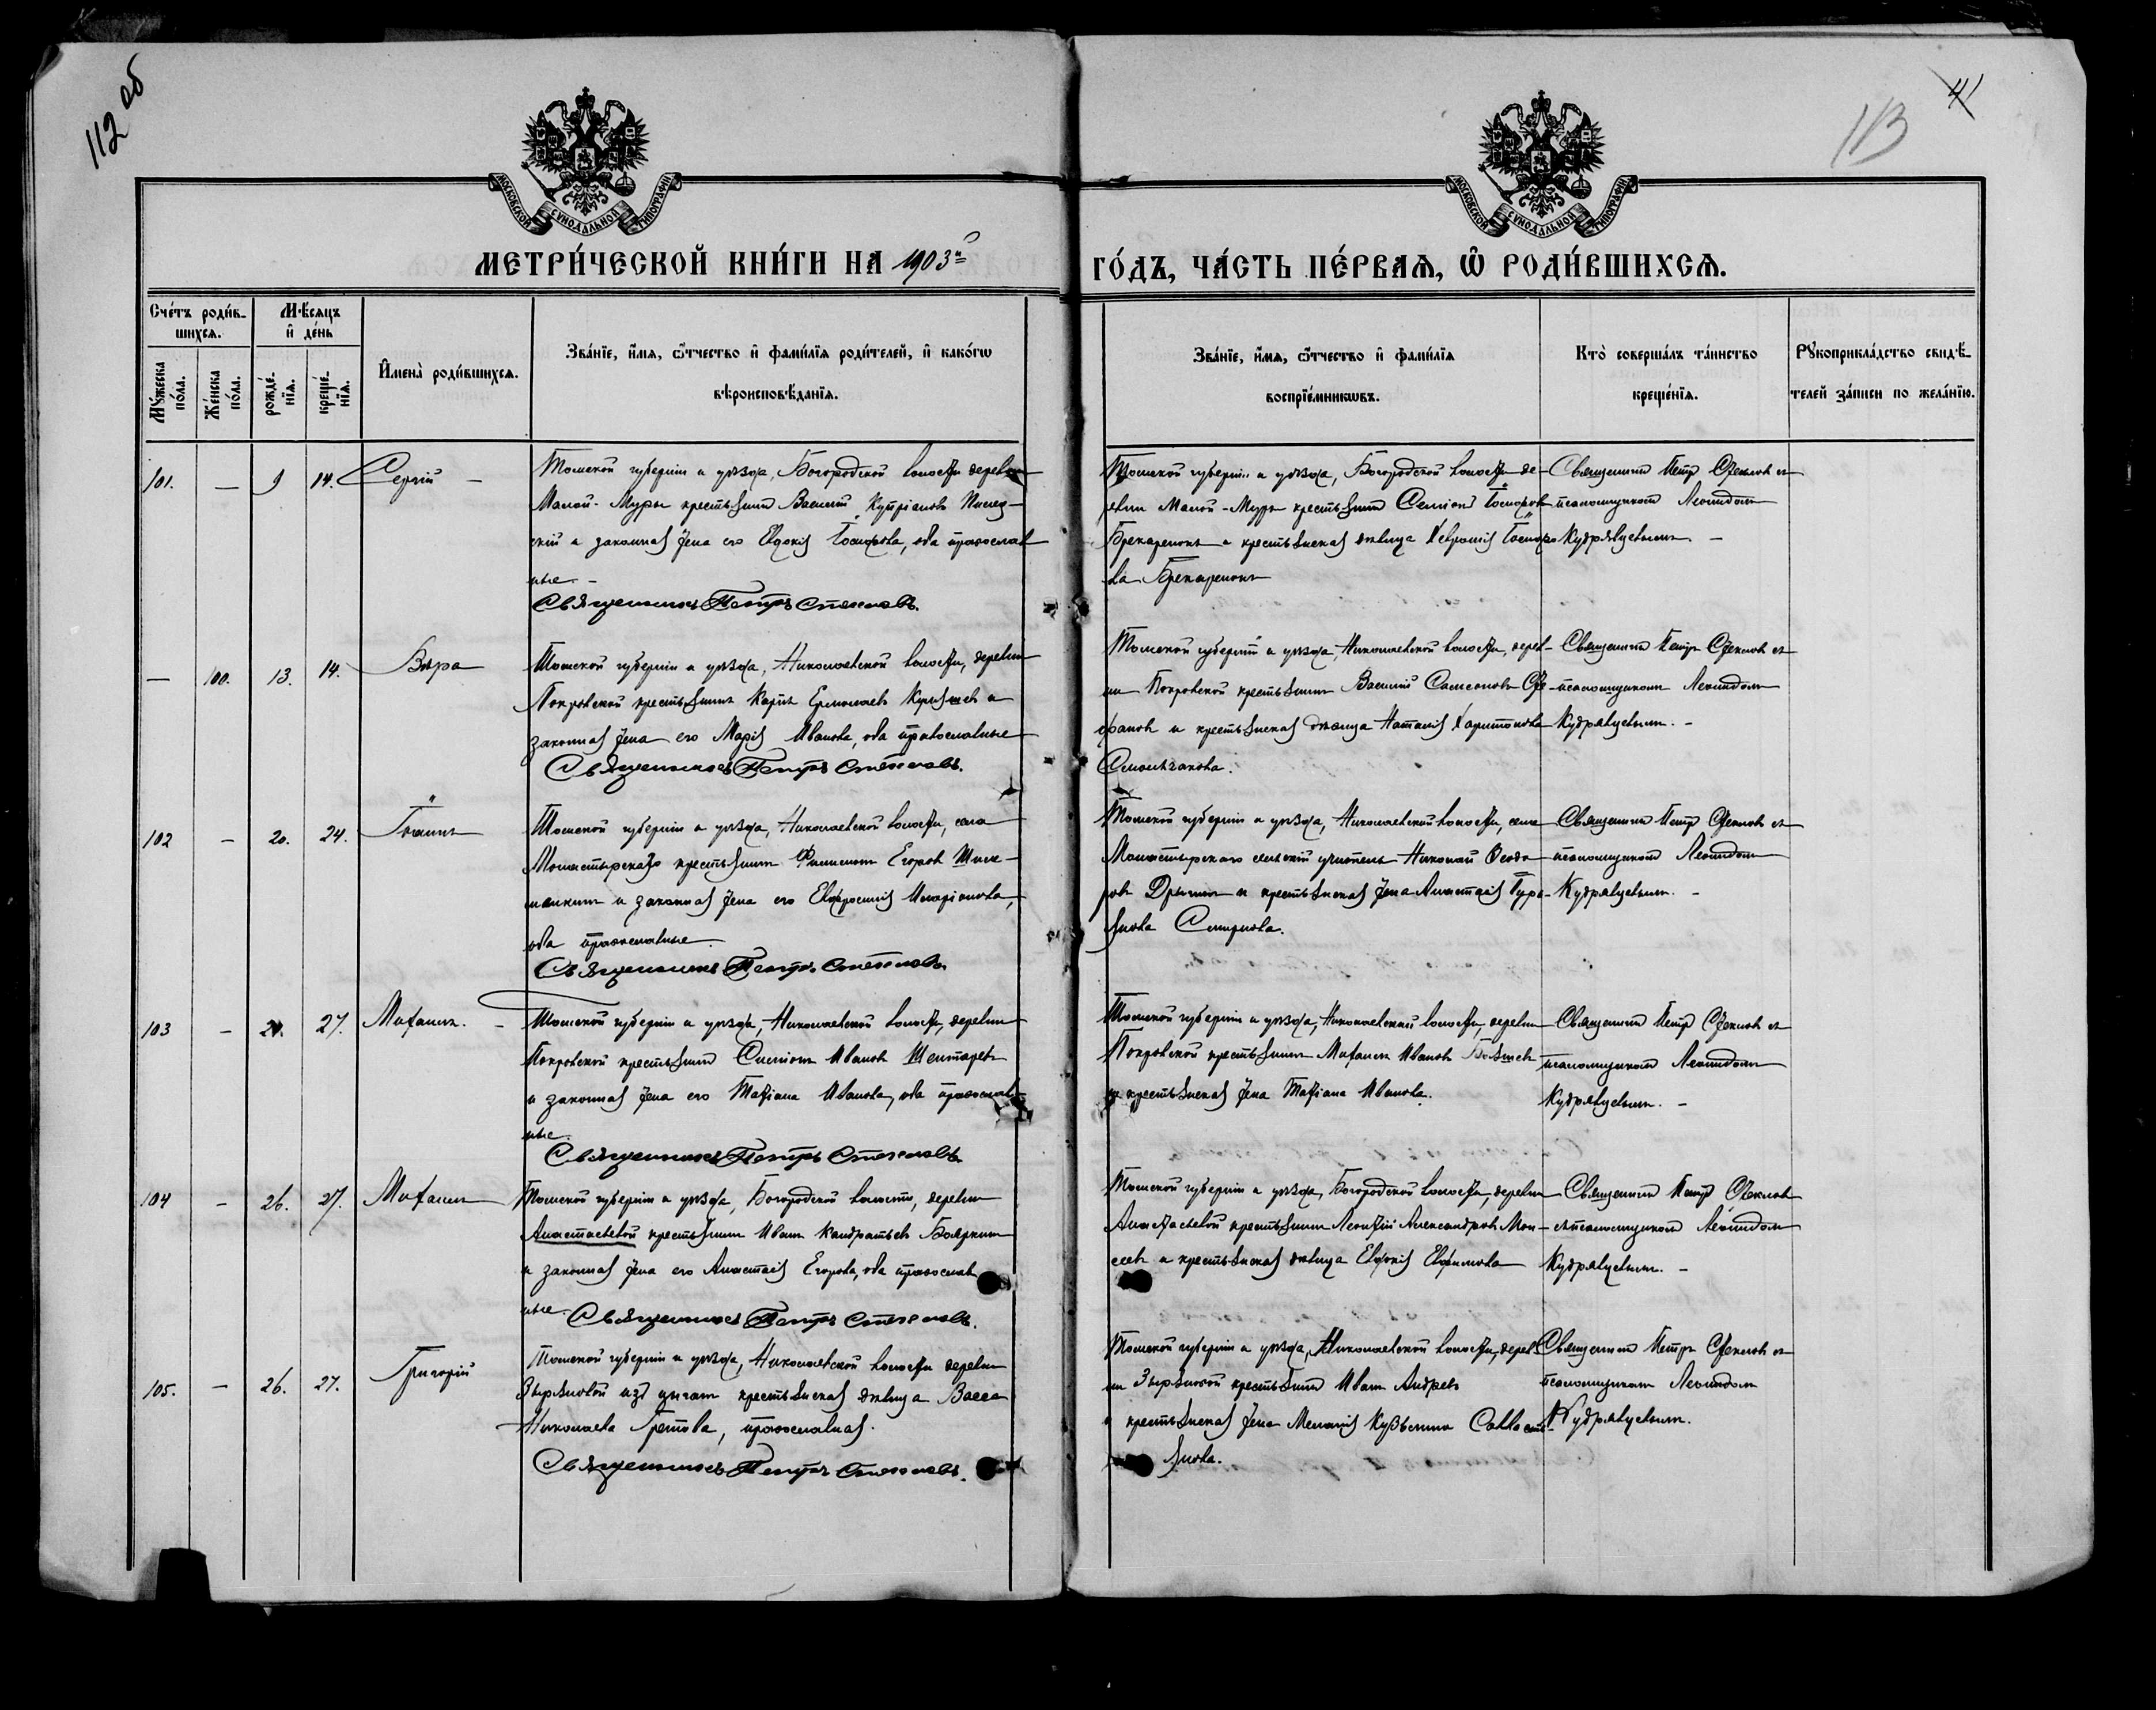 112 об
113
41
МОСКОВСКОЙ СУНОДАЛЬНОЙ ТИПОГРАФІИ
МОСКОВСКОЙ СУНОДАЛЬНОЙ ТИПОГРАФІИ
МЕТРИ́ЧЕСКОЙ КНИ́ГИ НА 1903й
ГО́ДЪ, ЧА́СТЬ ПЕ́РВАЯ, Ѡ РОДИ́ВШИХСЯ.
Сче́тъ роди́в-
шихся.
Мѣ́сяцъ
и҆ де́нь
Мꙋ́жеска по́ла.
Же́нска по́ла.
рожде́-нїѧ.
креще́-нїѧ.
И҆мена̀ роди́вшихся.
Зва́нїе, и҆́мя, ѻ҆́тчество и҆ фами́лїя роди́телей, и҆ како́гѡ
вѣроисповѣ́данїя.
Зва́нїе, и҆́мя, ѻ҆́тчество и҆ фами́лїя
воспрїе́мникѡвъ.
Кто̀ соверша́лъ та́инство
креще́нїя.
Рꙋкоприкла́дство свидѣ́-
телей за́писи по жела́нїю.
101. — 9 14. Сергій —
Томской губерніи и уѣзда, Богородской волости деревни
Малой-Муры крестьянинъ Василій Купріановъ
и законная жена его Евдокія Іосифова, оба православ
ные. —
Священникъ Петръ Стекловъ.
Томской губерніи и уѣзда, Богородской волости де-
ревни Малой-Муры крестьянинъ Семіонъ Іосифовъ
и крестьянская дѣвица Іосифо
ва
Священникъ Петръ Стекловъ съ
псаломщикомъ Леонидомъ
Кудрявцевымъ. —
— 100. 13. 14. Вѣра
Томской губерніи и уѣзда, Николаевской волости, деревни
Покровской крестьянинъ Карпъ Ермолаевъ и
законная жена его Марія Иванова, оба православные
Священникъ Петръ Стекловъ.
Томской губерніи и уѣзда, Николаевской волости, дерев-
ни Покровской крестьянинъ Василій Самсоновъ Сте-
фановъ и крестьянская дѣвица Наталія Харитонова
Священникъ Петръ Стекловъ съ
псаломщикомъ Леонидомъ
Кудрявцевымъ. —
102 — 20. 24. Іоаннъ
Томской губерніи и уѣзда, Николаевской волости, села
Монастырскаго крестьянинъ Филимонъ Егоровъ
и законная жена его Евфросинія Иларіонова,
оба православные.
Священникъ Петръ Стекловъ.
Томской губерніи и уѣзда, Николаевской волости, села
Монастырскаго сельскій учитель Николай Ѳеодо
ровъ и крестьянская жена Анастасія Гурь-
янова Смирнова.
Священникъ Петръ Стекловъ съ
псаломщикомъ Леонидомъ
Кудрявцевымъ. —
103 — 27. Михаилъ. —
Томской губерніи и уѣзда, Николаевской волости, деревни
Покровской крестьянинъ Симіонъ Ивановъ
и законная жена его Татіана Иванова, оба православ
ные.
Священникъ Петръ Стекловъ.
Томской губерніи и уѣзда, Николаевской волости, деревни
Покровской крестьянинъ Михаилъ Ивановъ
и крестьянская жена Татіана Иванова.
Священникъ Петръ Стекловъ съ
псаломщикомъ Леонидомъ
Кудрявцевымъ. —
104 — 26. 27. Михаилъ
Томской губерніи и уѣзда, Богородской волости, деревни
Анастасьевой крестьянинъ Иванъ Кандратьевъ Бояркинъ
и законная жена его Анастасія Егорова, оба православ
ные. Священникъ Петръ Стекловъ.
Томской губерніи и уѣзда, Богородской волости, деревни
Анастасьевой крестьянинъ Леонтій Александровъ Мои-
сеевъ и крестьянская дѣвица Евдокія Евфимова
Священникъ Петръ Стекловъ
съ псаломщикомъ Леонидомъ
Кудрявцевымъ. —
105. — 26. 27. Григорій
Томской губерніи и уѣзда, Николаевской волости деревни
Зыряновой изъ крестьянская дѣвица Васса
Николаева православная.
Священникъ Петръ Стекловъ.
Томской губерніи и уѣзда, Николаевской волости, дерев
ни Зыряновой крестьянинъ Иванъ Андреевъ
и крестьянская жена Меланія Кузьмина
Священникъ Петръ Стекловъ съ
псаломщикомъ Леонидомъ
Кудрявцевымъ.